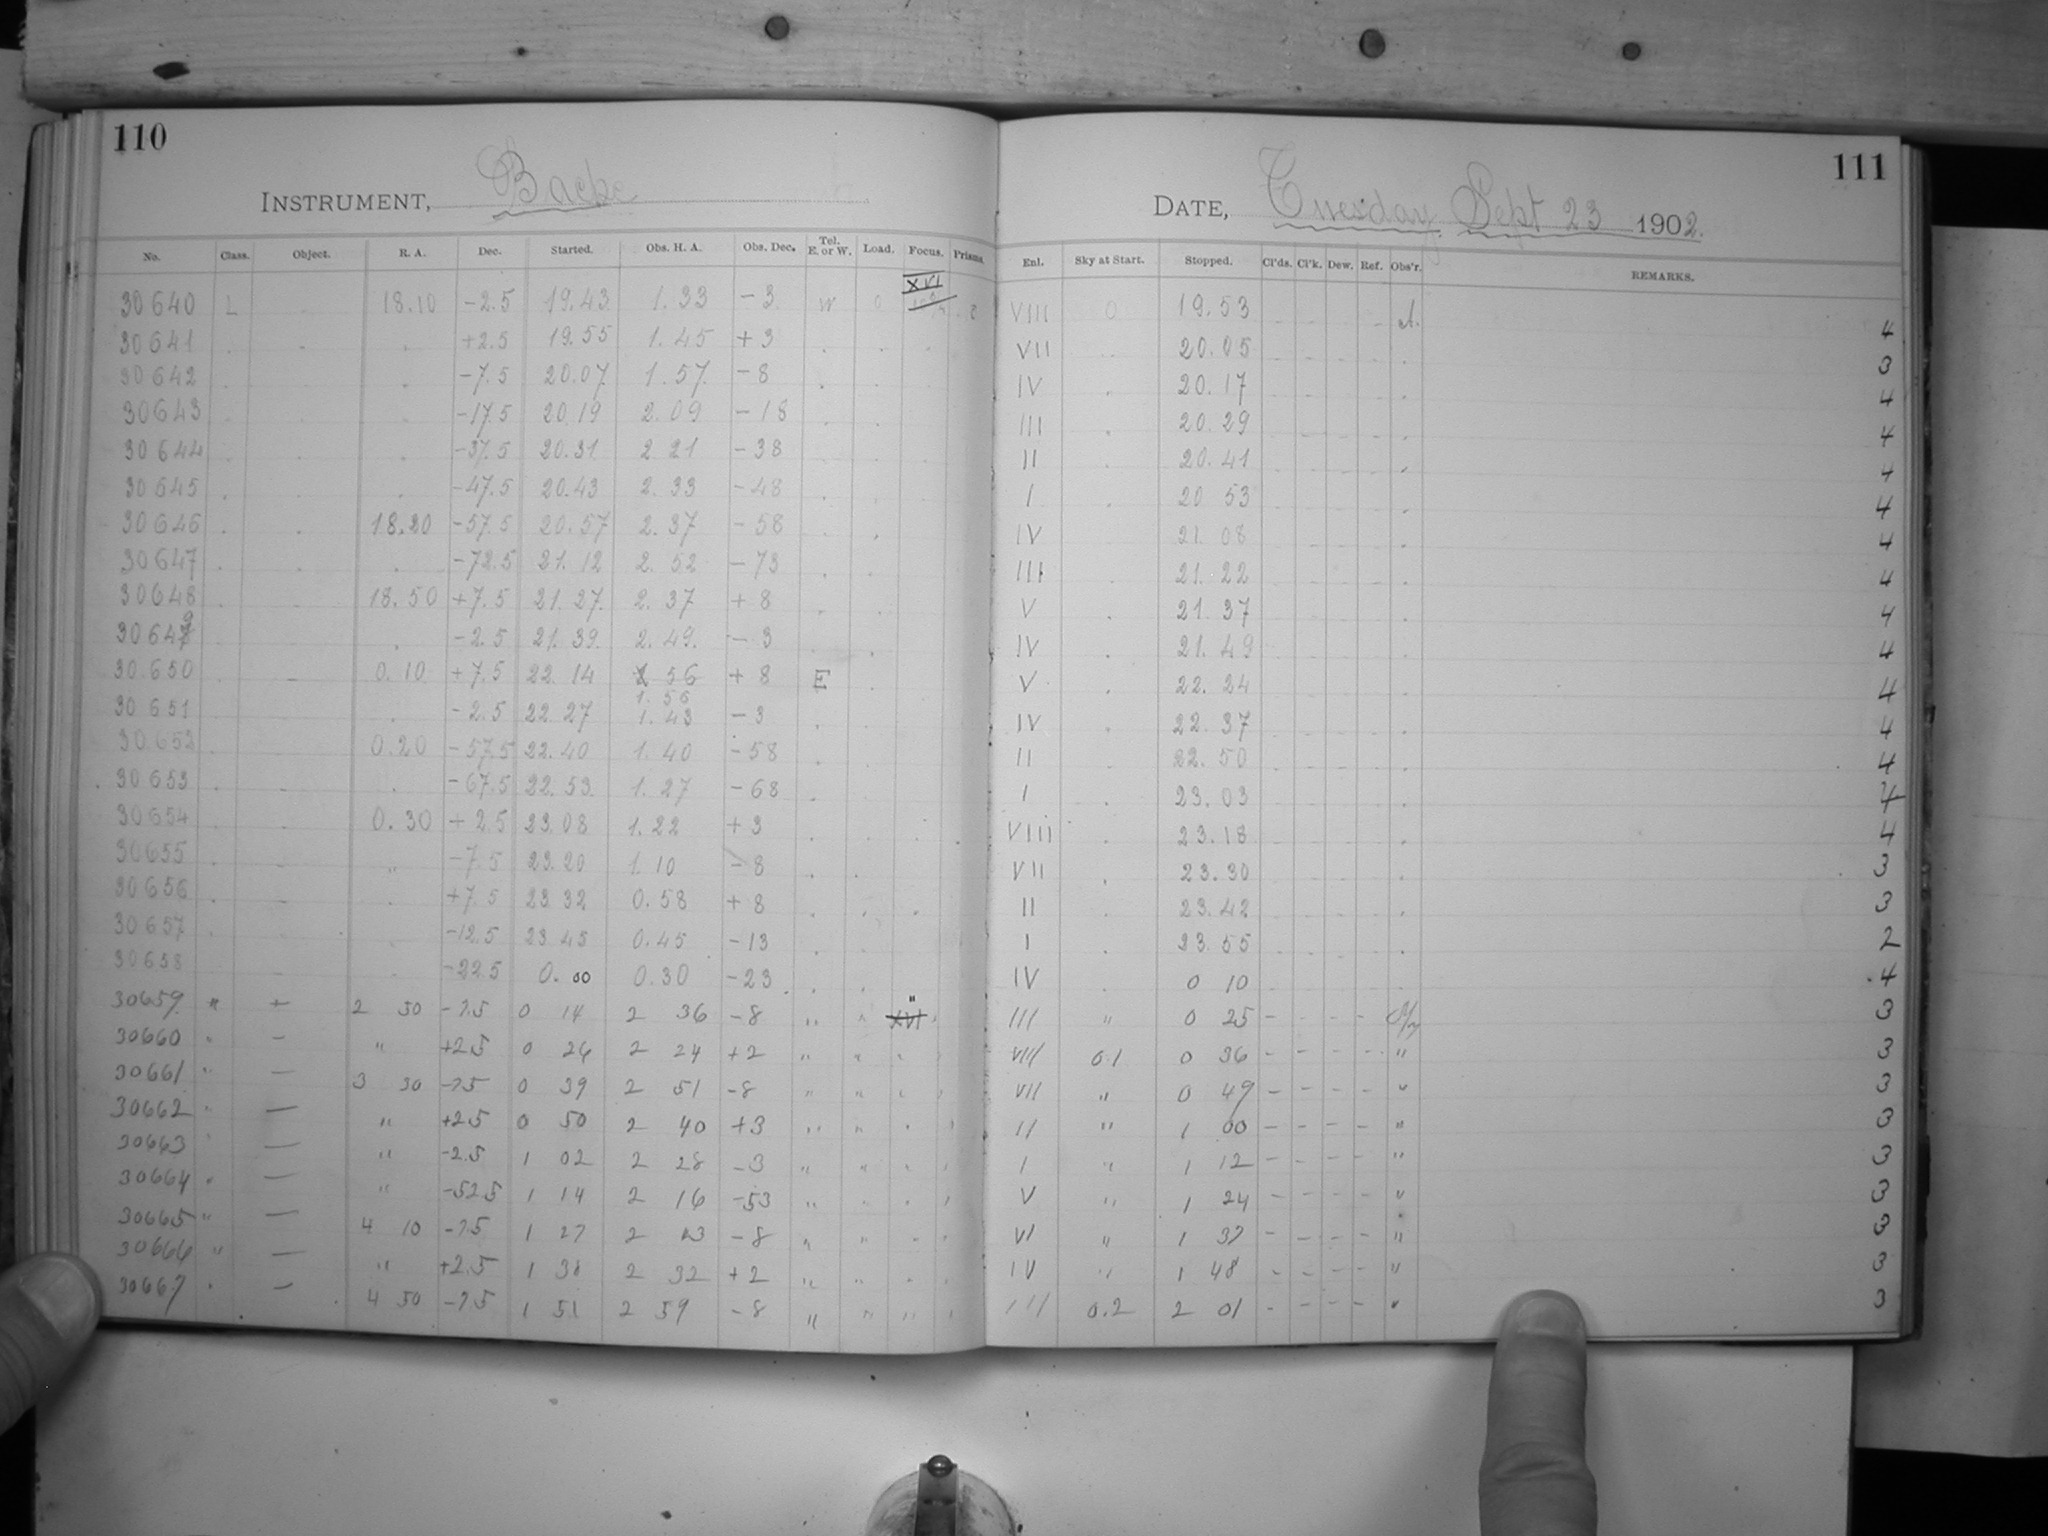 110
INSTRUMENT, Bache
No. Class. Object. R. A. Dec. Started. Obs. H. A. Obs. Dec. Tel. E. or W. Load. Focus. Prisms.
XVI
30640 L 18.10 -2.5 19.43 1.33 -3 W 0
30641 . . . +2.5 19.55 1.45 +3 . . .
30642 . . -7.5 20.07 1.57 -8 . .
30643 . -17.5 20 19 2.09 -18 . .
30644 . . -37.5 20.31 2 21 -38
30645 . . -47.5 20.43 2.33 -48 . .
30646 . . 18.20 -57.5 20.57 2.37 -58 . .
30647 . . -72.5 21.12 2.52 -73 . .
30648 . 18.50 +7.5 21.27 2.37 +8 . .
30649 . -2.5 21.39 2.49 -3 . .
30650 - 0.10 +7.5 22.14 56 +8 E .
1.56
30651 . -2.5 22.27 1.43 -3 .
30652 0.20 -57.5 22.40 1.40 -58 . .
30653 . . -67.5 22.53 1.27 -68 .
30654 0.30 +2.5 23.08 1.22 +3 . . .
30655 . " -7.5 23.20 1.10 -8 . .
30656 . . +7.5 23 32 0.58 +8 . . .
30657 -12.5 23 45 0.45 -13 .
30658 -22.5 0.00 0.30 -23 . .
30659 " - 2 30 -7.5 0 14 2 36 -8 " " XVI "
30660 " - " +2.5 0 26 2 24 +2 " " " "
30661 " - 3 30 -7.5 0 39 2 51 -8 " " " "
30662 " - " +2.5 0 50 2 40 +3 " " " "
30663 " - " -2.5 1 02 2 28 -3 " " " "
30664 " - " -52.5 1 14 2 16 -53 " " " "
30665 " - 4 10 -7.5 1 27 2 -8 " " " "
30666 " - " +2.5 1 38 2 32 +2 " " " "
30667 " - 4 50 -7.5 1 51 2 59 -8 " " " "
111
DATE, Tuesday Sept 23 1902.
Enl. Sky at Start. Stopped. Cl'ds. Cl'k. Dew. Ref. Obs'r. REMARKS.
VIII 0 19.53 - - - - A. 4
VII 20.05 . 3
IV . 20.17 . 4
III . 20.29 - - - - . 4
II . 20.41 . 4
I . 20 53 . 4
IV 21.08 . 4
III 21.22 . 4
V . 21.37 . 4
IV . 21.49 . 4
V . 22.24 . 4
IV . 22.37 . 4
II . 22.50 . 4
I . 23.03 . 4
VIII . 23.18 . 4
VII . 23.30 . 3
II . 23.42 . 3
I . 23.55 . 2
IV . 0 10 . 4
III " 0 25 - - - - 3
VIII 0.1 0 36 - - - - " 3
VII " 0 49 - - - - " 3
II " 1 00 - - - - " 3
I " 1 12 - - - - " 3
V " 1 24 - - - - " 3
VI " 1 37 - - - - " 3
IV " 1 48 - - - - " 3
III 0.2 2 01 - - - - " 3